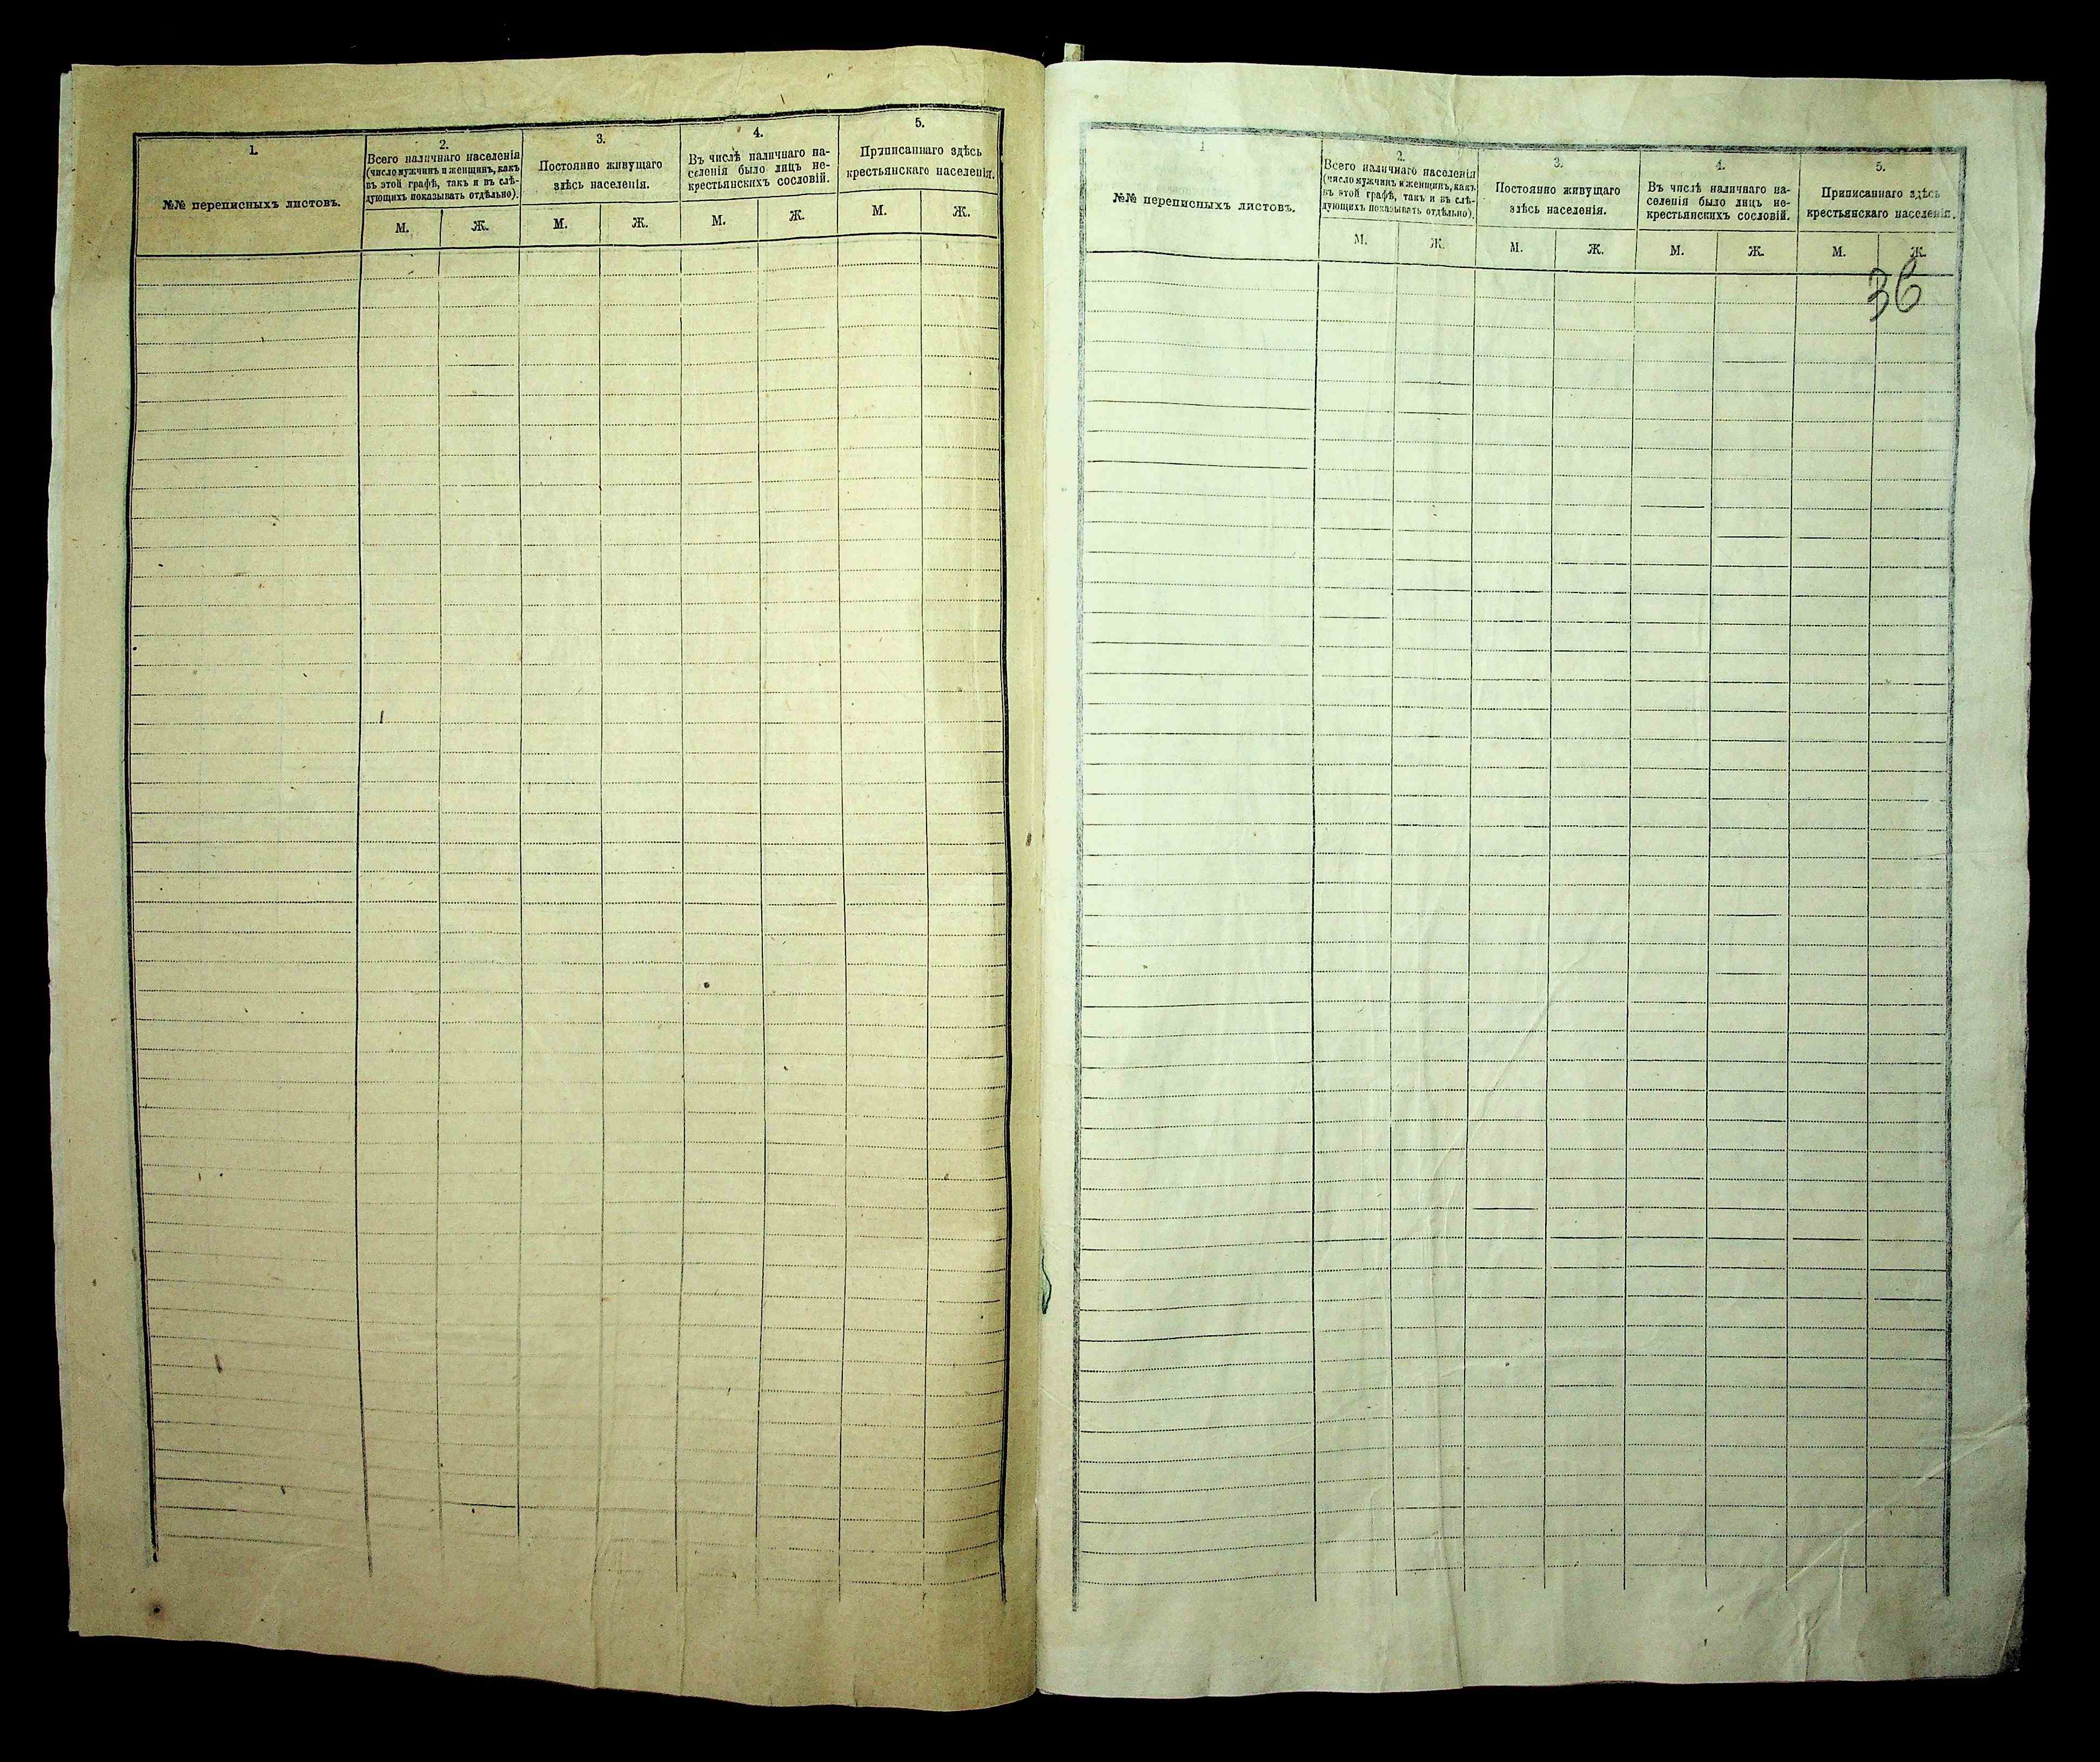 1.
№№ переписныхъ листовъ.
2.
Всего наличнаго населенія
(число мужчинъ и женщинъ, какъ
въ этой графѣ, такъ и въ слѣ-
дующихъ показывать отдѣльно).
М. Ж.
3.
Постоянно живущаго
здѣсь населенія.
М. Ж.
4.
Въ числѣ наличнаго на-
селенія было лицъ не-
крестьянскихъ сословій.
М. Ж.
5.
Приписаннаго здѣсь
крестьянскаго населенія.
М. Ж.
1
№№ переписныхъ листовъ.
2.
Всего наличнаго населенія
(число мужчинъ и женщинъ, какъ
въ этой графѣ, такъ и въ слѣ-
дующихъ показывать отдѣльно).
М. Ж.
3.
Постоянно живущаго
здѣсь населенія.
М. Ж.
4.
Въ числѣ наличнаго на-
селенія было лицъ не-
крестьянскихъ сословій.
М. Ж.
5.
Приписаннаго здѣсь
крестьянскаго населенія.
М. Ж.
36